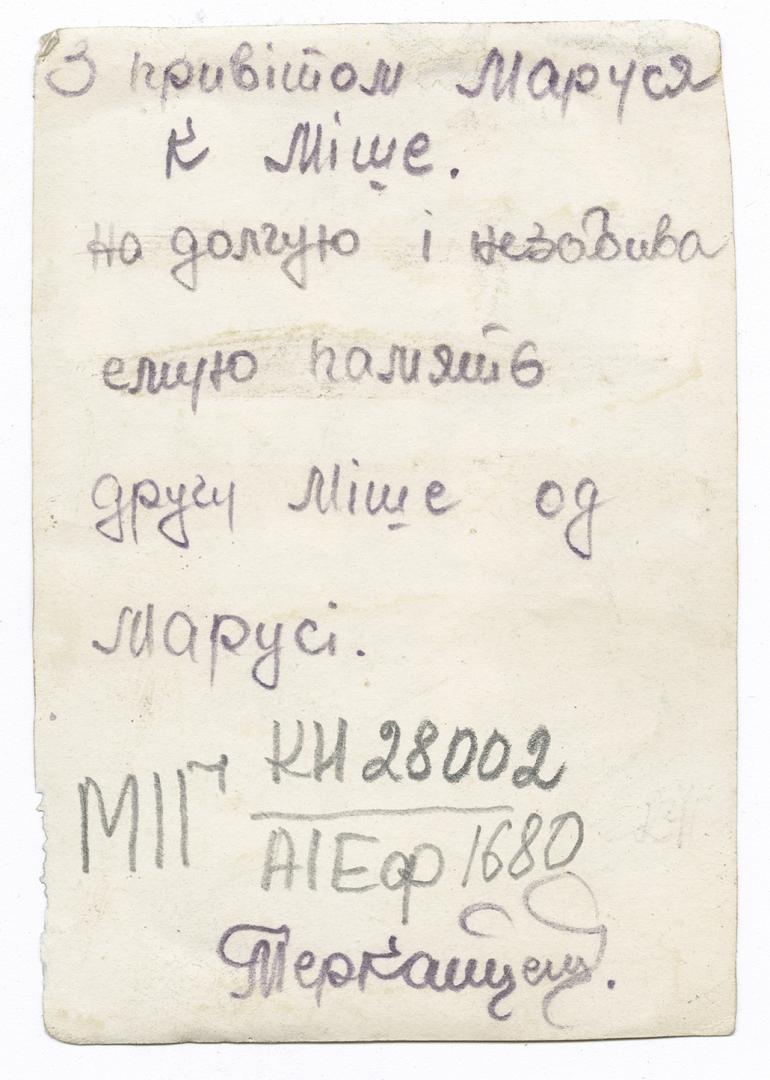 З привітом Маруся
К Міше.
на долгую і незабива
емую память
другу Міше од
Марусі.
КН 28002
АІЕф 1680